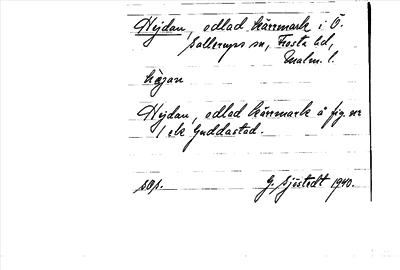 Hejdan, odlad kärrmark i Ö.
Sallerups sn, Frosta hd,
Malm. l.
hæjan
Hejdan, odlad kärrmark å fig. nr
1 ek Guddastad.
sOs.
G. Sjöstedt 1940.